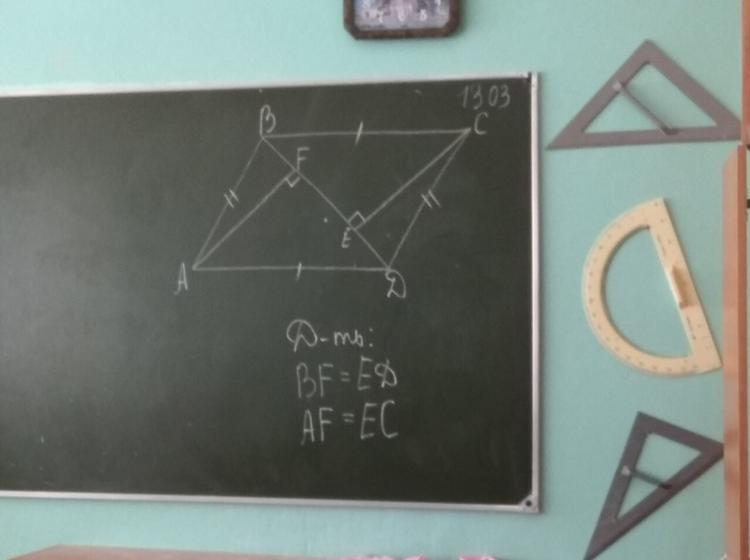 1303
B C
F
E
A D
D-ть:
BF = ED
AF = EC